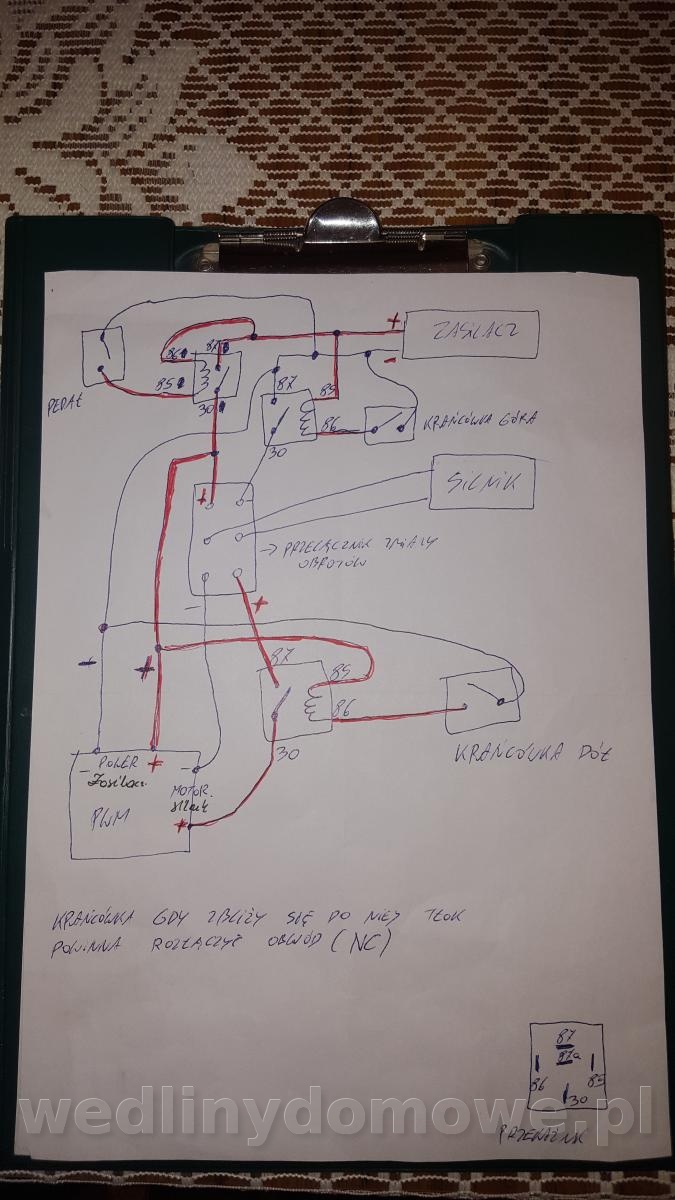 +
ZASILACZ
-
86
87
85
30
PEDAŁ
87
85
86
30
KRAŃCÓWKA GÓRA
SILNIK
+
→ PRZEŁĄCZNIK ZMIANY
OBROTÓW
-
+
87
85
86
30
- +
KRAŃCÓWKA DÓŁ
- POWER + -
Zasilacz
MOTOR
silnik
PWM
+
KRAŃCÓWKA GDY ZBLIŻY SIĘ DO NIEJ TŁOK
POWINNA ROZŁĄCZYĆ OBWÓD (NC)
87
87a
86 85
30
PRZEKAŹNIK
wedlinydomowe.pl